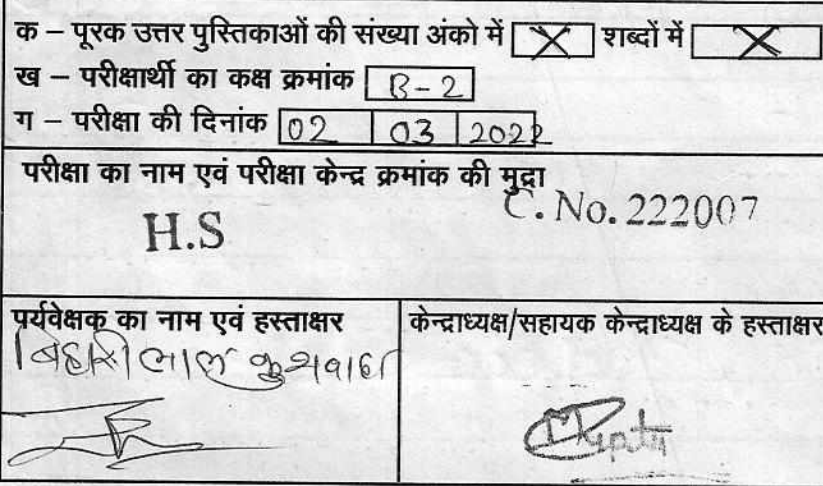 क – पूरक उत्तर पुस्तिकाओं की संख्या अंको में X शब्दों में X
ख – परीक्षार्थी का कक्ष क्रमांक B-2
ग – परीक्षा की दिनांक 02 03 2022
परीक्षा का नाम एवं परीक्षा केन्द्र क्रमांक की मुद्रा
C. No. 222007
H.S
पर्यवेक्षक का नाम एवं हस्ताक्षर
बिहारी लाल कुशवाहा
केन्द्राध्यक्ष/सहायक केन्द्राध्यक्ष के हस्ताक्षर